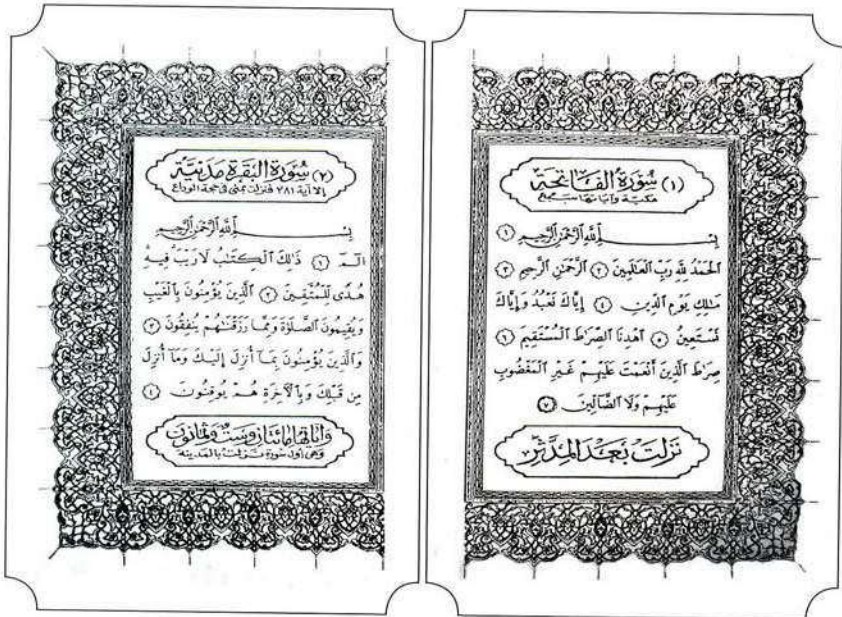 (١) سُورَةُ الفَاتِحَة
مكية وآياتها سبع
بِسْمِ ٱللَّهِ ٱلرَّحْمَٰنِ ٱلرَّحِيمِ ١
ٱلْحَمْدُ لِلَّهِ رَبِّ ٱلْعَٰلَمِينَ ٢ ٱلرَّحْمَٰنِ ٱلرَّحِيمِ ٣
مَٰلِكِ يَوْمِ ٱلدِّينِ ٤ إِيَّاكَ نَعْبُدُ وَإِيَّاكَ
نَسْتَعِينُ ٥ ٱهْدِنَا ٱلصِّرَٰطَ ٱلْمُسْتَقِيمَ ٦
صِرَٰطَ ٱلَّذِينَ أَنْعَمْتَ عَلَيْهِمْ غَيْرِ ٱلْمَغْضُوبِ
عَلَيْهِمْ وَلَا ٱلضَّآلِّينَ ٧
نَزَلَت بَعْدَ المُدَّثِّر
(٢) سُورَةُ البَقَرَة مَدَنِيَّة
إلا آية ٢٨١ فنزلت بمنى في حجة الوداع
بِسْمِ ٱللَّهِ ٱلرَّحْمَٰنِ ٱلرَّحِيمِ
الٓمٓ ١ ذَٰلِكَ ٱلْكِتَٰبُ لَا رَيْبَ فِيهِ
هُدًى لِّلْمُتَّقِينَ ٢ ٱلَّذِينَ يُؤْمِنُونَ بِٱلْغَيْبِ
وَيُقِيمُونَ ٱلصَّلَوٰةَ وَمِمَّا رَزَقْنَٰهُمْ يُنفِقُونَ ٣
وَٱلَّذِينَ يُؤْمِنُونَ بِمَآ أُنزِلَ إِلَيْكَ وَمَآ أُنزِلَ
مِن قَبْلِكَ وَبِٱلْءَاخِرَةِ هُمْ يُوقِنُونَ ٤
وَآيَاتهَا مائتان وست وثمانون
وهي أول سورة نزلت بالمدينة